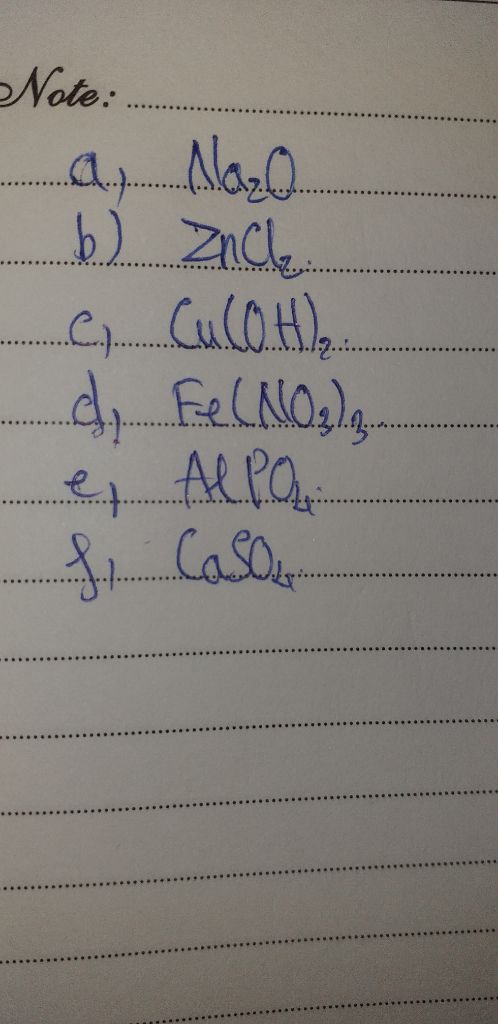 Note:
a, Na₂O
b) ZnCl₂.
c, Cu(OH)₂.
d, Fe(NO₃)₃.
e, AlPO₄.
f, CaSO₄.